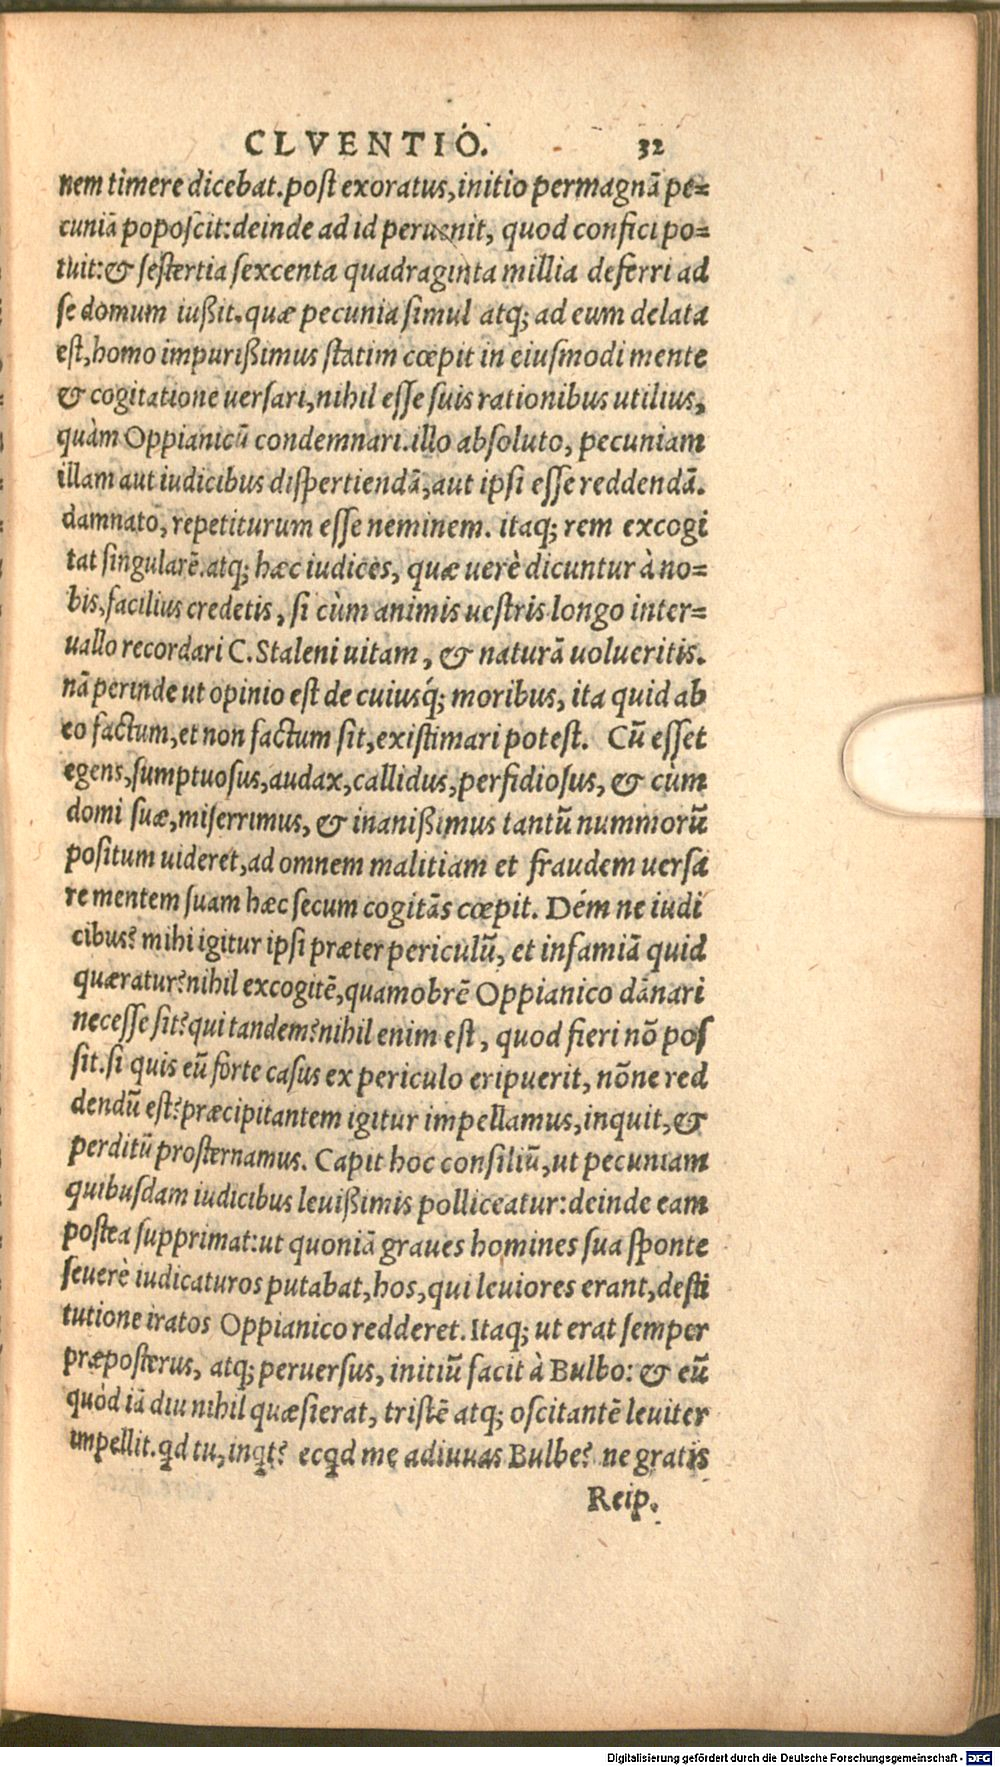 CLVENTIO. 32
nem timere dicebat. post exoratus, initio permagnā pe=
cuniā poposcit: deinde ad id peruenit, quod confici po=
tuit: & sestertia sexcenta quadraginta millia deferri ad
se domum iußit. quæ pecunia simul atq; ad eum delata
est, homo impurißimus statim cœpit in eiusmodi mente
& cogitatione uersari, nihil esse suis rationibus utilius,
quàm Oppianicū condemnari. illo absoluto, pecuniam
illam aut iudicibus dispertiendā, aut ipsi esse reddendā.
damnato, repetiturum esse neminem. itaq; rem excogi
tat singularē. atq; hæc iudices, quæ uerè dicuntur à no=
bis, facilius credetis, si cùm animis uestris longo inter=
uallo recordari C. Staleni uitam, & naturā uolueritis.
nā perinde ut opinio est de cuiusq́; moribus, ita quid ab
eo factum, et non factum sit, existimari potest. Cū esset
egens, sumptuosus, audax, callidus, perfidiosus, & cùm
domi suæ, miserrimus, & inanißimus tantū nummorū
positum uideret, ad omnem malitiam et fraudem uersa
re mentem suam hæc secum cogitās cœpit. Dém ne iudi
cibus? mihi igitur ipsi præter periculū, et infamiā quid
quæratur? nihil excogitē, quamobrē Oppianico dānari
necesse sit? qui tandem? nihil enim est, quod fieri nō pos
sit. si quis eū forte casus ex periculo eripuerit, nōne red
dendū est? præcipitantem igitur impellamus, inquit, &
perditū prosternamus. Capit hoc consiliū, ut pecuniam
quibusdam iudicibus leuißimis polliceatur: deinde eam
postea supprimat: ut quoniā graues homines sua sponte
seuerè iudicaturos putabat, hos, qui leuiores erant, desti
tutione iratos Oppianico redderet. Itaq; ut erat semper
præposterus, atq; peruersus, initiū facit à Bulbo: & eū
quòd iā diu nihil quæsierat, tristē atq; oscitantē leuiter
impellit. qd tu, inqt? ecqd me adiuuas Bulbe? ne gratis
Reip.
Digitalisierung gefördert durch die Deutsche Forschungsgemeinschaft - DFG